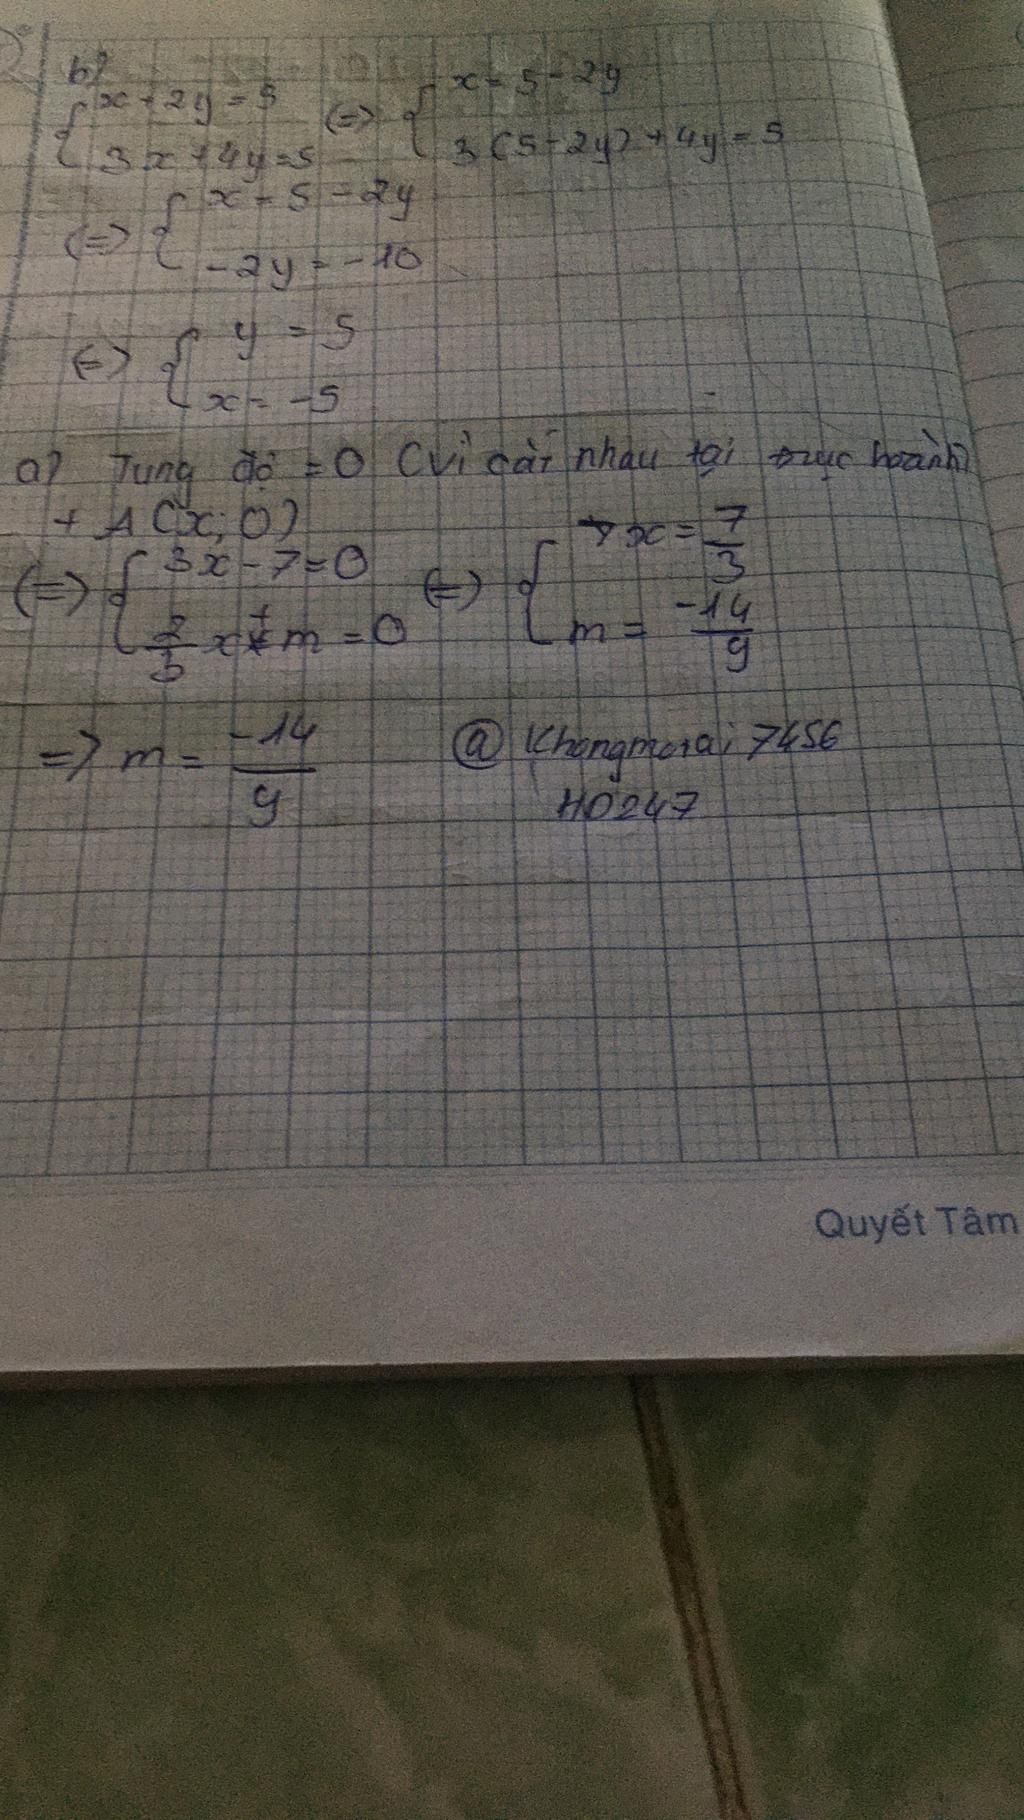 b)
{ x + 2y = 5 (=> { x = 5 - 2y
{ 3x + 4y = 5 { 3(5 - 2y) + 4y = 5
(=> { x = 5 - 2y
{ -2y = -10
(=> { y = 5
{ x = -5
a) Tung độ = 0 (vì cắt nhau tại trục hoành)
+ A(x; 0)
(=> { 3x - 7 = 0 (=> { x = 7/3
{ 2/3 x + m = 0 { m = -14/9
=> m = -14/9 @ Khongmorai 7456
HD247
Quyết Tâm